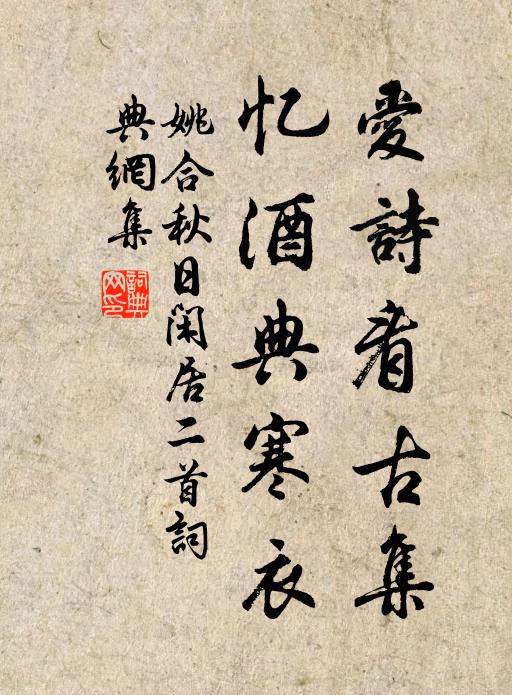 愛詩看古集
忆酒典寒衣
姚合秋日閑居二首詞
典網集
詞典网印